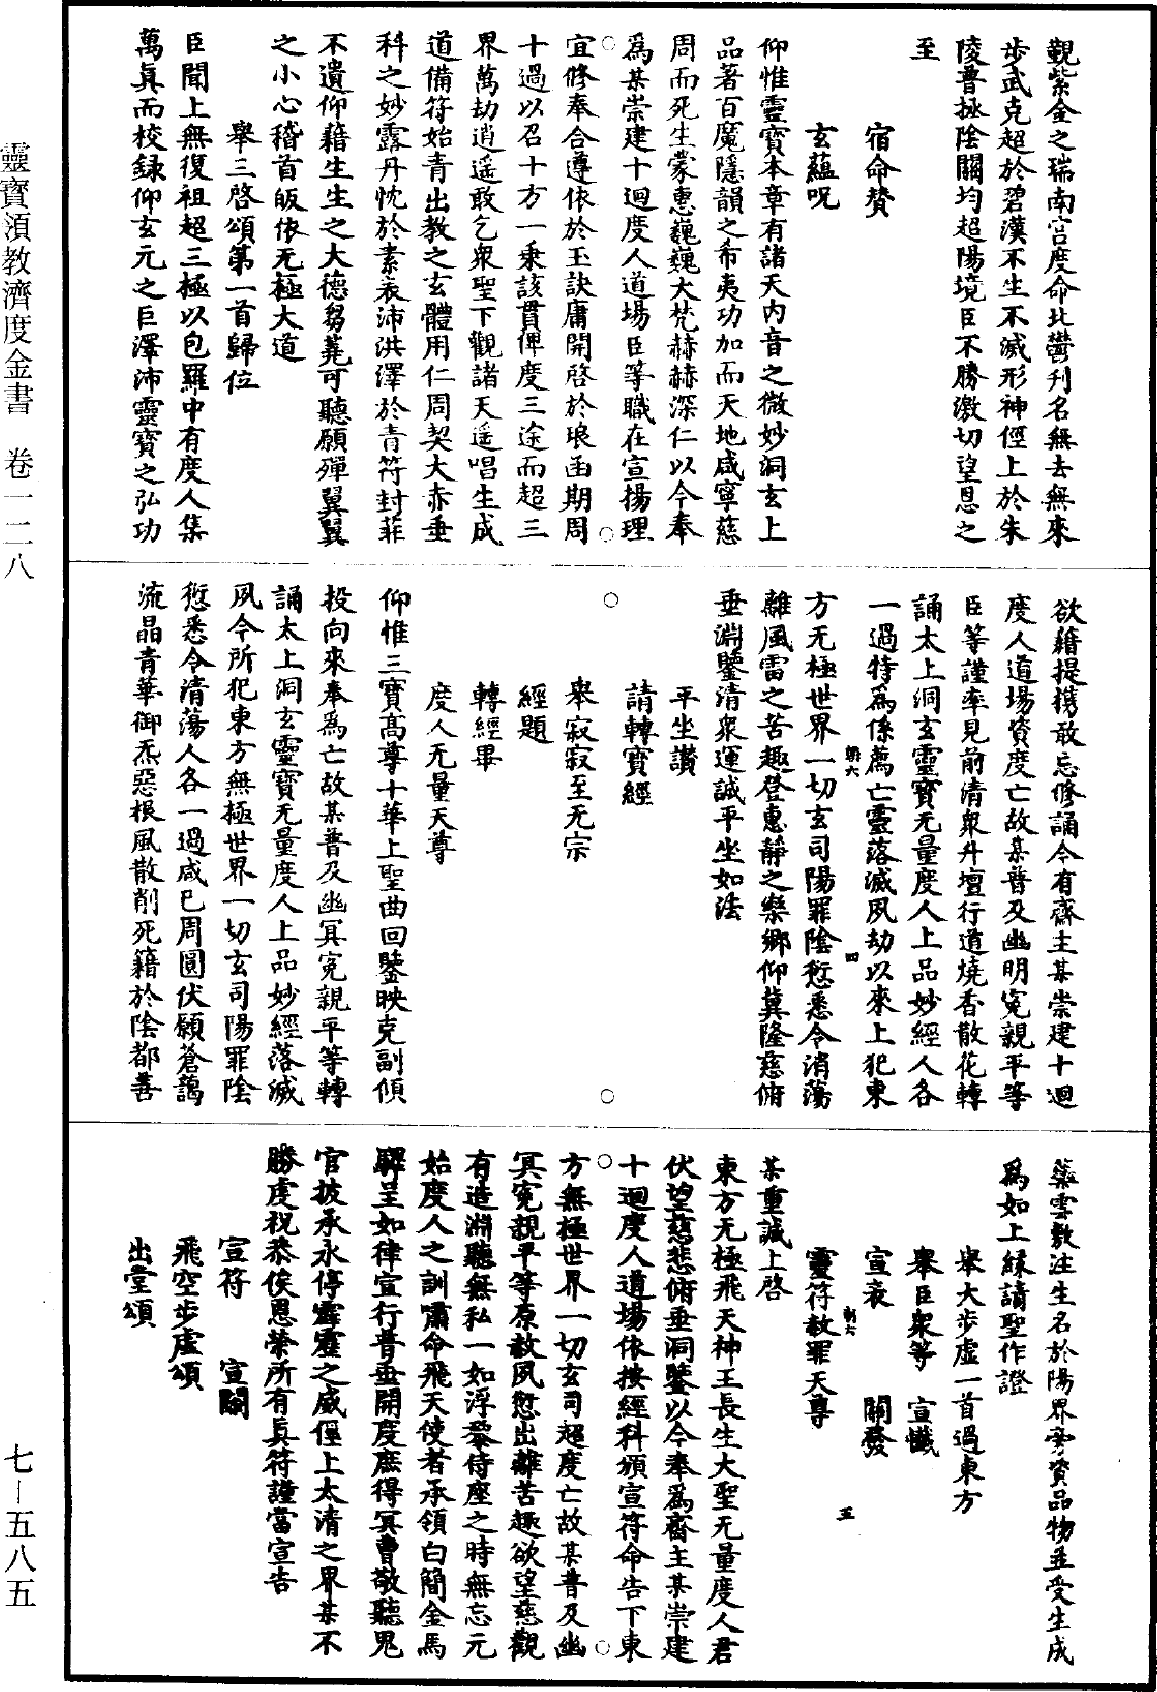 覲紫金之瑞南宮度命北酆刊名無去無來
步武克超於碧漢不生不滅形神俓上於朱
陵普拯陰關均超陽境臣不勝激切望恩之
至
宿命贊
玄蘊呪
仰惟靈寶本章有諸天內音之微妙洞玄上
品著百魔隱韻之希夷功加而天地咸寧慈
周而死生蒙惠巍巍大梵赫赫深仁以今奉
爲某崇建十迴度人道場臣等職在宣揚理
宜修奉合遵依於玉訣庸開啓於琅函期周
十過以召十方一秉該貫俾度三途而超三
界萬劫逍遙敢乞衆聖下觀諸天遥唱生成
道備符始青出教之玄體用仁周契大赤垂
科之妙露丹忱於素衷沛洪澤於青符封菲
不遺仰籍生生之大德芻蕘可聽願殫翼翼
之小心稽首皈依无極大道
舉三啓頌第一首歸位
臣聞上無復祖超三極以包羅中有度人集
萬眞而校録仰玄元之巨澤沛靈寶之弘功
欲籍提携敢忘修誦今有齋主某崇建十迴
度人道場資度亡故某普及幽明寃親平等
臣等謹率見前清衆升壇行道燒香散花轉
誦太上洞玄靈寶无量度人上品妙經人各
一過特爲係薦亡靈落滅夙劫以來上犯東
方无極世界一切玄司陽罪陰愆悉令消蕩
離風雷之苦趣登惠靜之樂鄉仰冀隆慈俯
垂淵鑒清衆運誠平坐如法
平坐讚
請轉寶經
舉寂寂至无宗
經題
轉經畢
度人无量天尊
仰惟三寶高尊十華上聖曲回鑒映克副傾
投向來奉爲亡故某普及幽冥寃親平等轉
誦太上洞玄靈寶无量度人上品妙經落滅
夙今所犯東方無極世界一切玄司陽罪陰
愆悉令清蕩人各一過咸已周圓伏願蒼靄
流晶青華御炁惡根風散削死籍於陰都善
蘂雲敷注生名於陽界旁資品物並受生成
爲如上緣請聖作證
舉大步虛一首過東方
舉臣衆等　宣懺
宣衷　關發
靈符赦罪天尊
某重誠上啓
東方无極飛天神王長生大聖无量度人君
伏望慈悲俯垂洞鑒以今奉爲齋主某崇建
十迴度人道場依按經科頒宣符命告下東
方無極世界一切玄司超度亡故某普及幽
冥寃親平等原赦夙愆出離苦趣欲望慈觀
有造淵聽無私一如浮黎侍座之時無忘元
始度人之訓嘯命飛天使者承領白簡金馬
驛呈如律宣行普垂開度庶得冥曹敬聽鬼
官披承永停霹靂之威俓上太清之界某不
勝虔祝恭俟恩榮所有眞符謹當宣告
宣符　宣關
飛空步虛頌
出堂頌
靈寶領教濟度金書　卷一二八
七—五八五